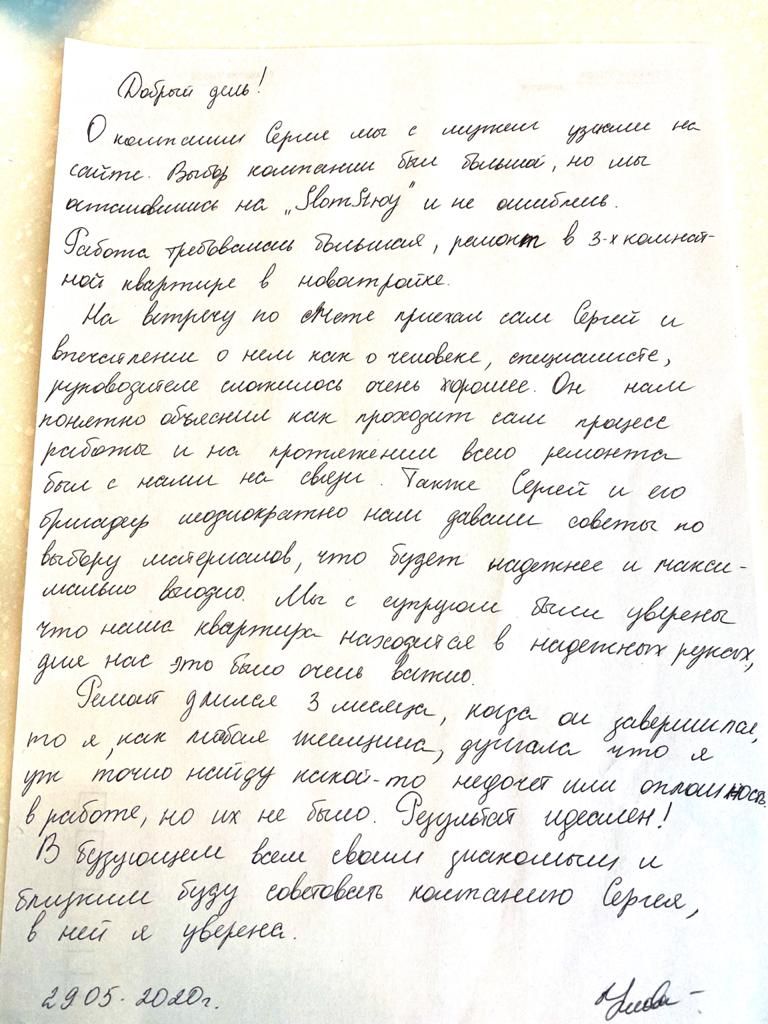 Добрый день!
О компании Сергея мы с мужем узнали на
сайте. Выбор компании был большой, но мы
остановились на „SlomStroy" и не ошиблись.
Работа требовалась большая, ремонт в 3-х комнат-
ной квартире в новостройке.
На встречу по смете приехал сам Сергей и
впечатление о нем как о человеке, специалисте,
руководителе сложилось очень хорошее. Он нам
понятно объяснил как проходит сам процесс
работы и на протяжении всего ремонта
был с нами на связи. Также Сергей и его
бригадир неоднократно нам давали советы по
выбору материалов, что будет надежнее и макси-
мально выгодно. Мы с супругом были уверены
что наша квартира находится в надежных руках,
для нас это было очень важно.
Ремонт длился 3 месяца, когда он завершился,
то я, как любая женщина, думала что я
уж точно найду какой-то недочет или оплошность
в работе, но их не было. Результат идеален!
В будующем всем своим знакомым и
близким буду советовать компанию Сергея,
в ней я уверена.
29.05.2020г.